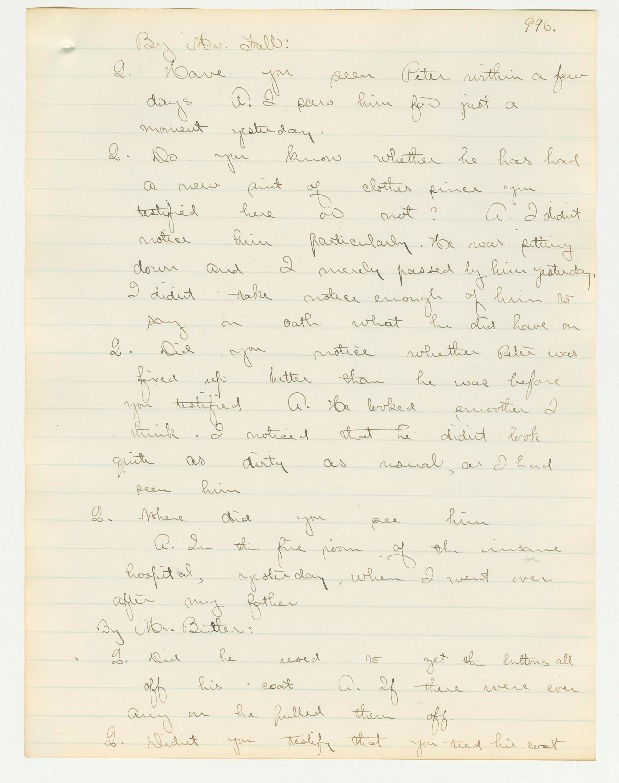 996.
By Mr. Fall:
Q. Have you seen Peter within a few
days A. I saw him for just a
moment yesterday.
Q. Do you know whether he has had
a new suit of clothes since you
testified here or not? A. I didnt
notice him particularly. He was sitting
down and I merely passed by him yesterday.
I didnt take notice enough of him to
say on oath what he did have on
Q. Did you notice whether Peter was
fixed up better than he was before
you testified A. He looked smoother I
think. I noticed that he didnt look
quite as dirty as usual, as I had
seen him
Q. Where did you see him
A. In the fire room of the insane
hospital, yesterday, when I went over
after my father
By Mr. Butler:
Q. Did he used to get the buttons all
off his coat A. If there were ever
any on he pulled them off.
Q. Didnt you testify that you tied his coat